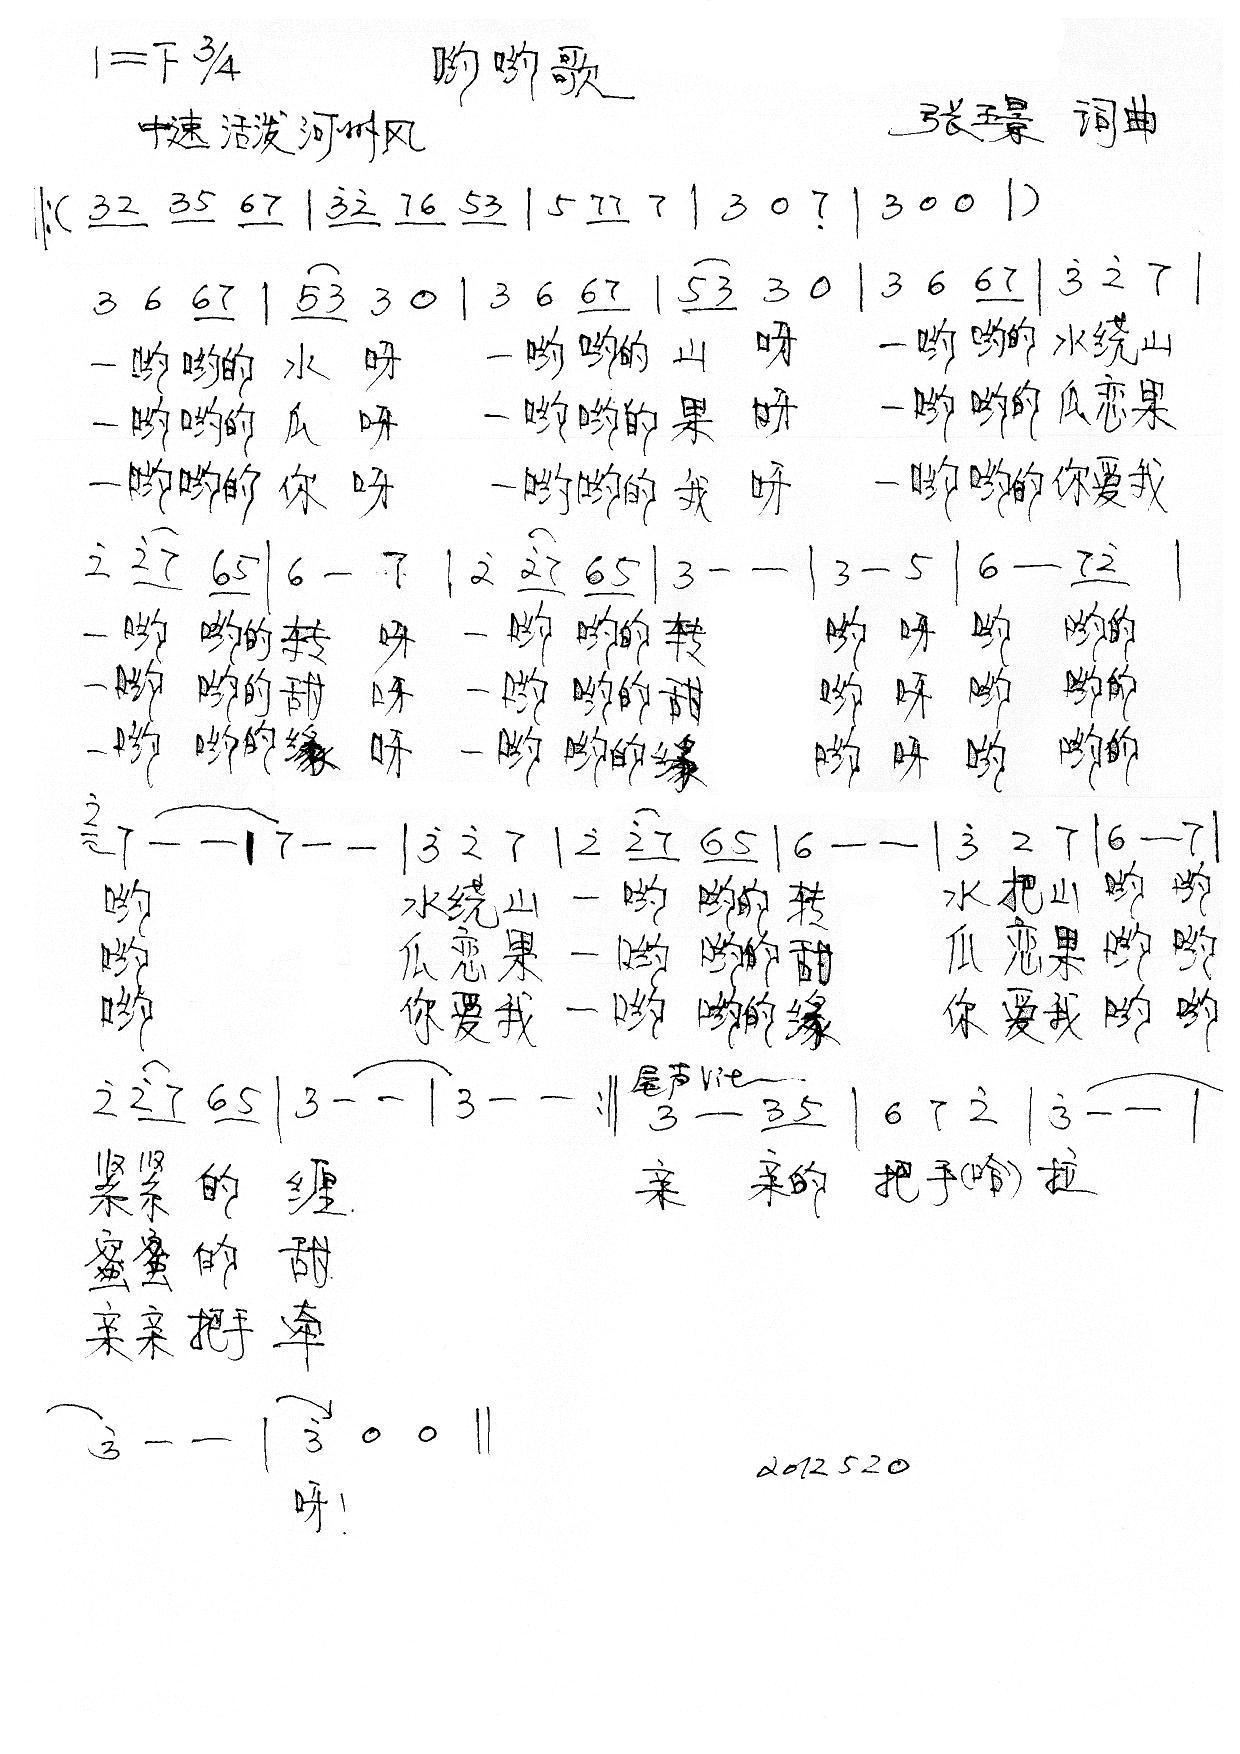 1=F 3/4 哟哟歌
中速 活泼 河州风 张玉景 词曲
‖:( 32 35 67 | 3̇2̇ 76 53 | 5 77 7 | 3 0 7̣ | 3 0 0 |)
3 6 67 | 53 3 0 | 3 6 67 | 53 3 0 | 3 6 67 | 3̇ 2̇ 7 |
一哟哟的 水 呀 一哟哟的 山 呀 一哟 哟的 水绕山
一哟哟的 瓜 呀 一哟哟的 果 呀 一哟 哟的 瓜恋果
一哟哟的 你 呀 一哟哟的 我 呀 一哟 哟的 你爱我
2̇ 2̇7 65 | 6 — 7 | 2̇ 2̇7 65 | 3 — — | 3 — 5 | 6 — 72̇ |
一哟 哟的 转 呀 一哟 哟的 转 哟 呀 哟 哟的
一哟 哟的 甜 呀 一哟 哟的 甜 哟 呀 哟 哟的
一哟 哟的 缘 呀 一哟 哟的 缘 哟 呀 哟 哟的
2̇ 7 — — | 7 — — | 3̇ 2̇ 7 | 2̇ 2̇7 65 | 6 — — | 3̇ 2 7 | 6 — 7 |
哟 水绕山 一哟 哟的 转 水把山 哟 哟
哟 瓜恋果 一哟 哟的 甜 瓜恋果 哟 哟
哟 你爱我 一哟 哟的 缘 你爱我 哟 哟
2̇ 2̇7 65 | 3 — — | 3 — — :‖ 尾声 Vit 3 — 35 | 6 7 2̇ | 3̇ — — |
紧紧 的 缠 亲 亲的 把手(哈) 拉
蜜蜜 的 甜
亲亲 把手 牵
3̇ — — | 3̇ 0 0 ‖
2012520
呀!